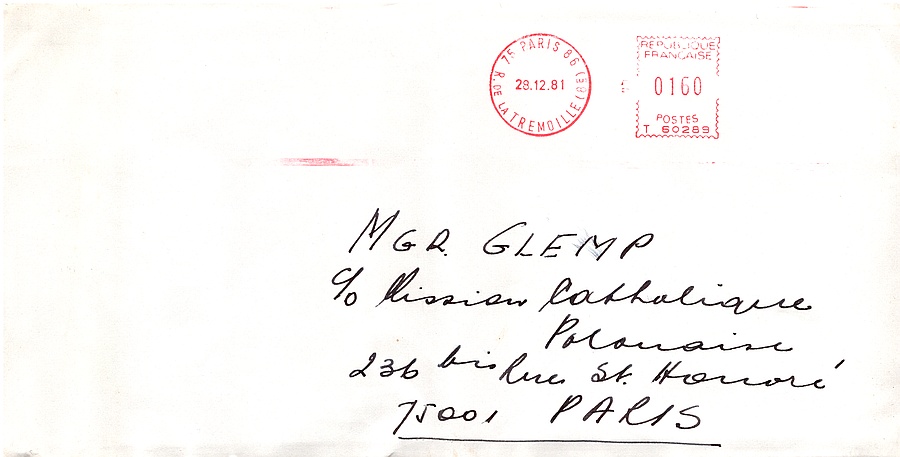 75 PARIS 86 (8E)
R. DE LA TREMOILLE
28.12.81
REPUBLIQUE
FRANCAISE
0160
POSTES
T 60289
MGR. GLEMP
c/o Mission Catholique
Polonaise
236 bis Rue St. Honoré
75001 PARIS